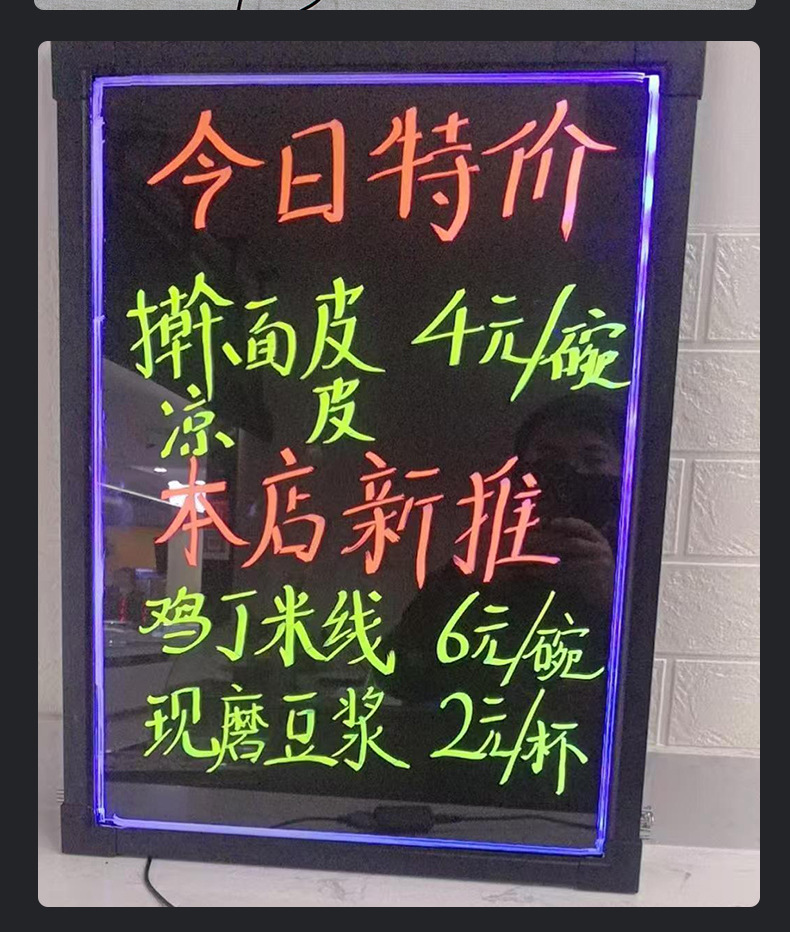 今日特价
擀面皮 4元/碗
凉皮
本店新推
鸡丁米线 6元/碗
现磨豆浆 2元/杯